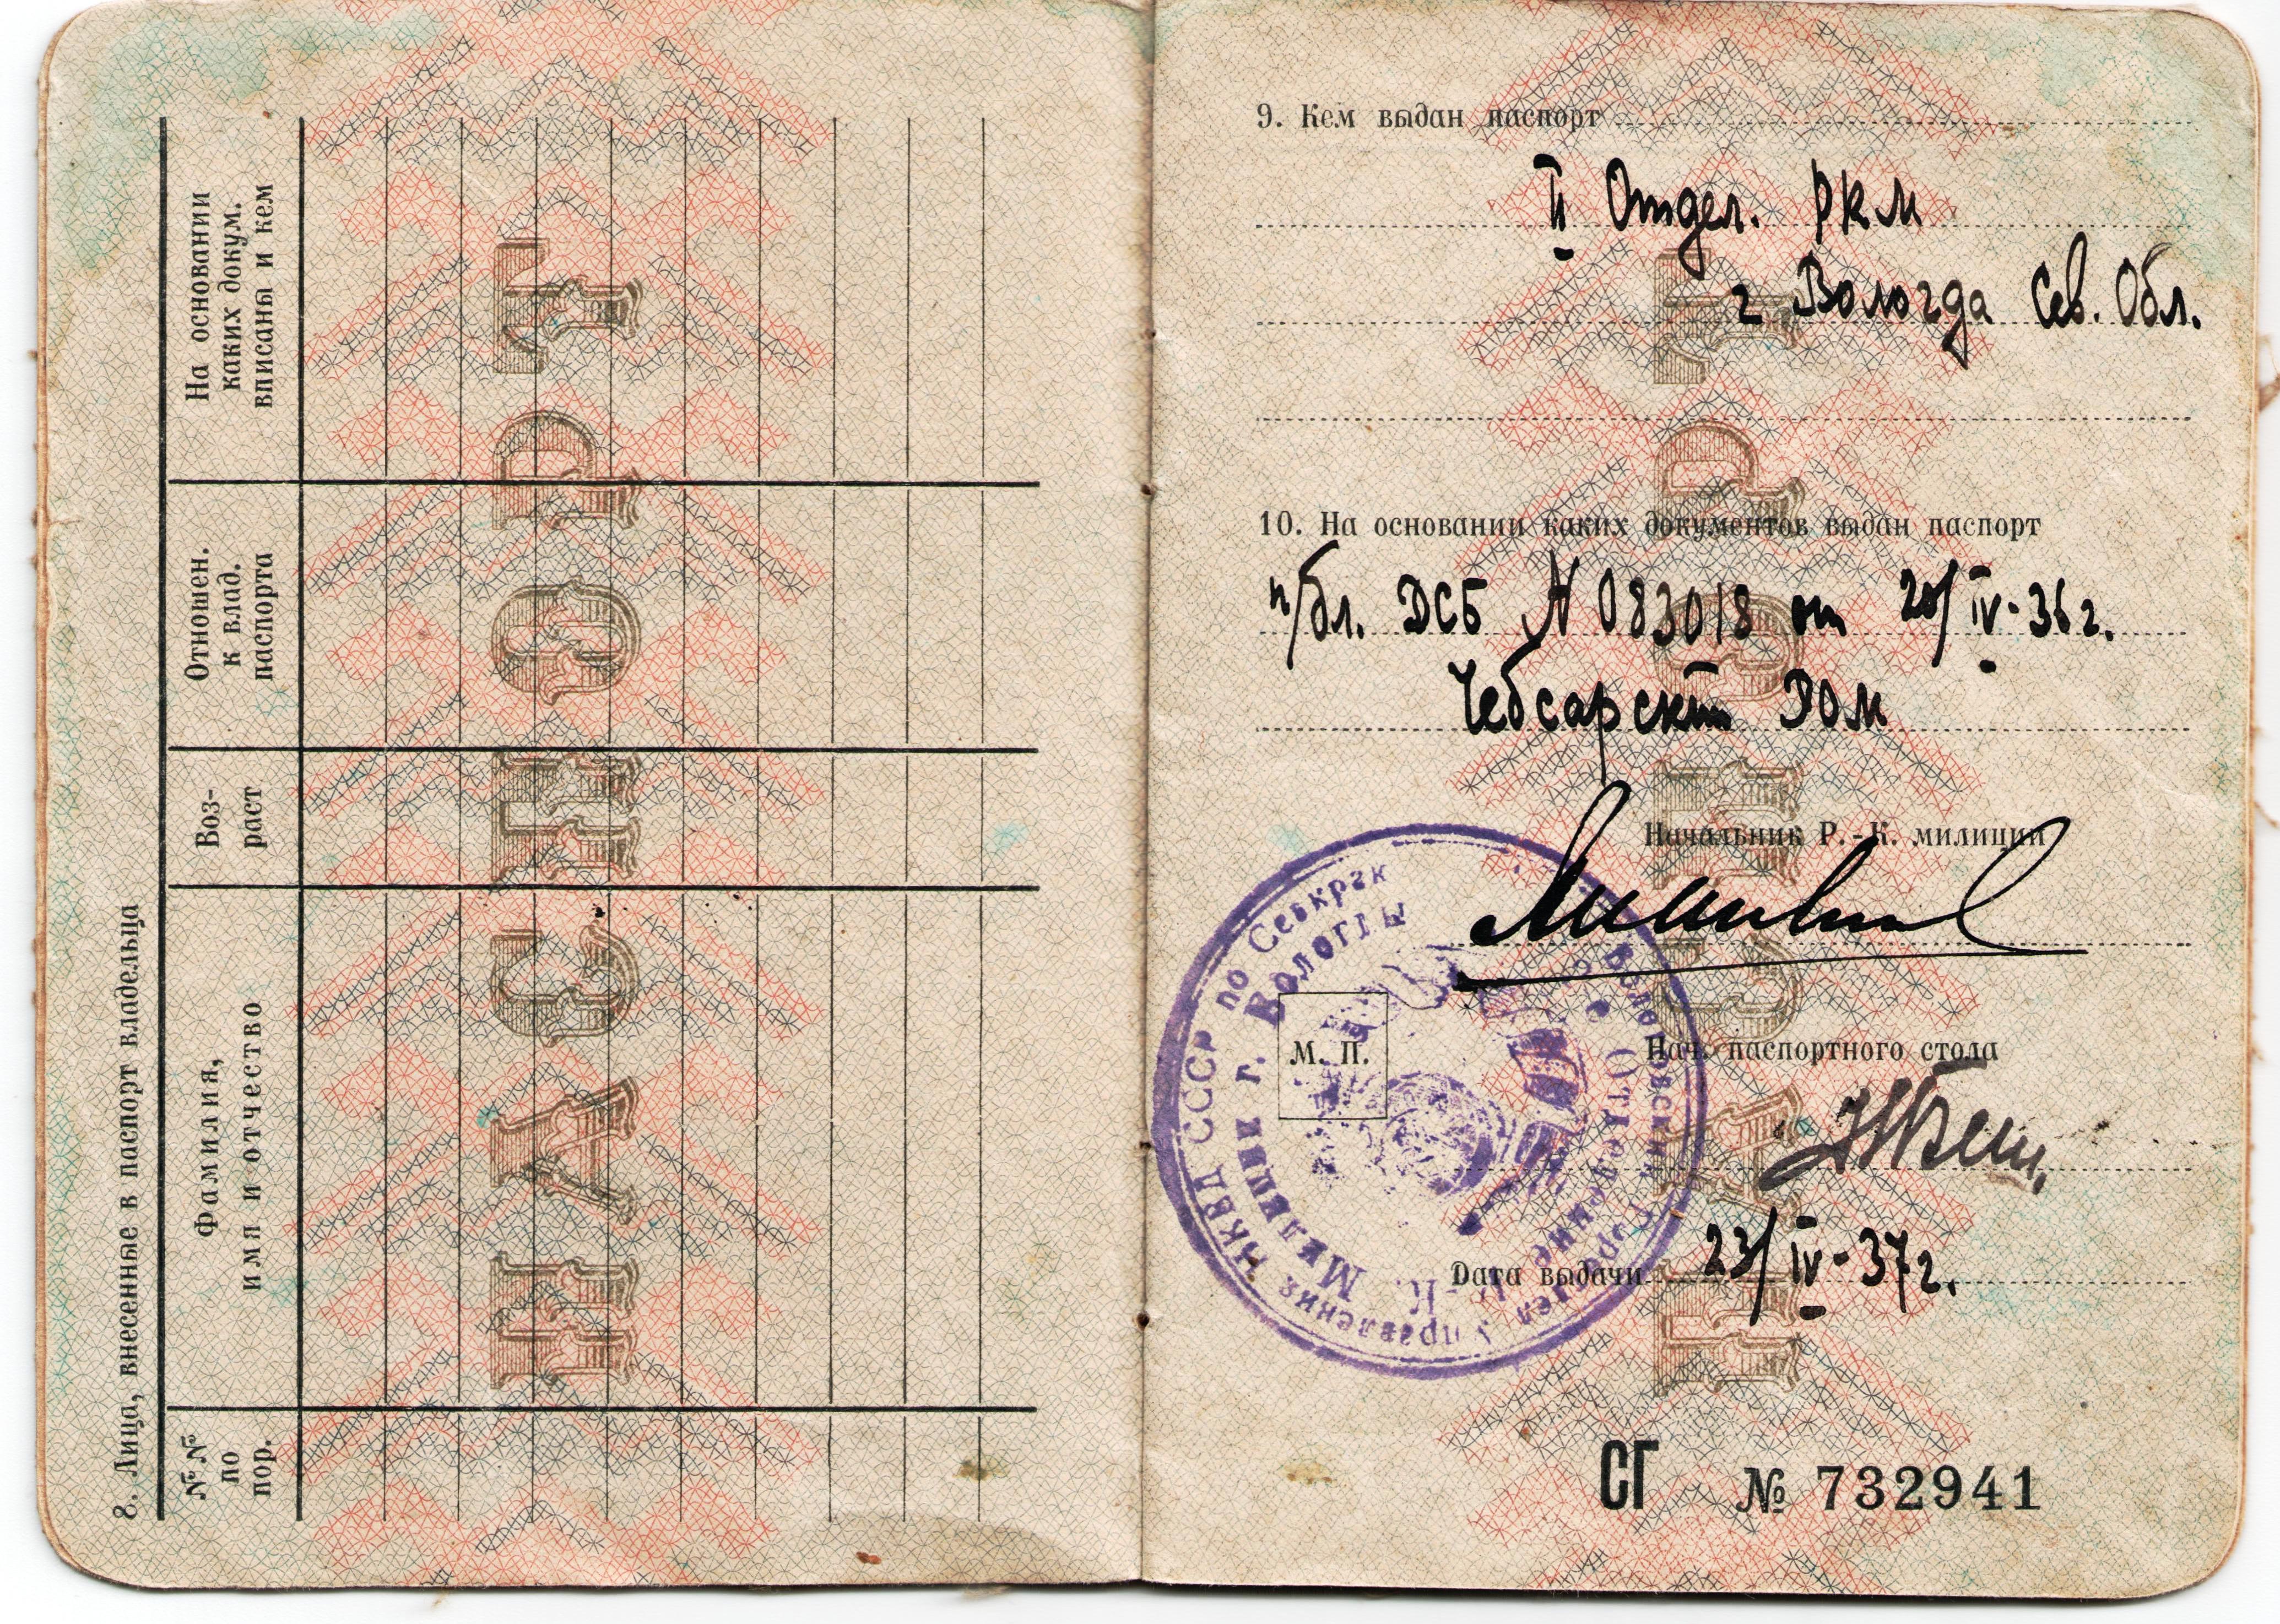 8. Лица, внесенные в паспорт владельца
№№
по
пор.
Фамилия,
имя и отчество
Воз-
раст
Отношен.
к влад.
паспорта
На основании
каких докум.
вписаны и кем
ПАСПОРТ
9. Кем выдан паспорт
II Отдел. РКМ
г Вологда Сев. Обл.
10. На основании каких документов выдан паспорт
п/бл. ДСБ N 083018 от 20/IV-36 г.
Чебсарский РОМ
Начальник Р.-К. милиции
М. П.
Нач. паспортного стола
Дата выдачи 23/IV-37 г.
Управления НКВД СССР по Севкраю
Р.-К. Милиции г. Вологды
Вологодский Горотдел
Отделение
ПАСПОРТ
СГ № 732941